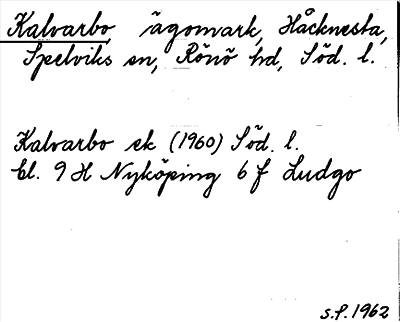 Kalvarbo, ägomark, Håcknesta,
Spelviks sn, Rönö hd, Söd. l.
Kalvarbo ek (1960) Söd. l.
bl. 9 H Nyköping 6 f Ludgo
S.P. 1962